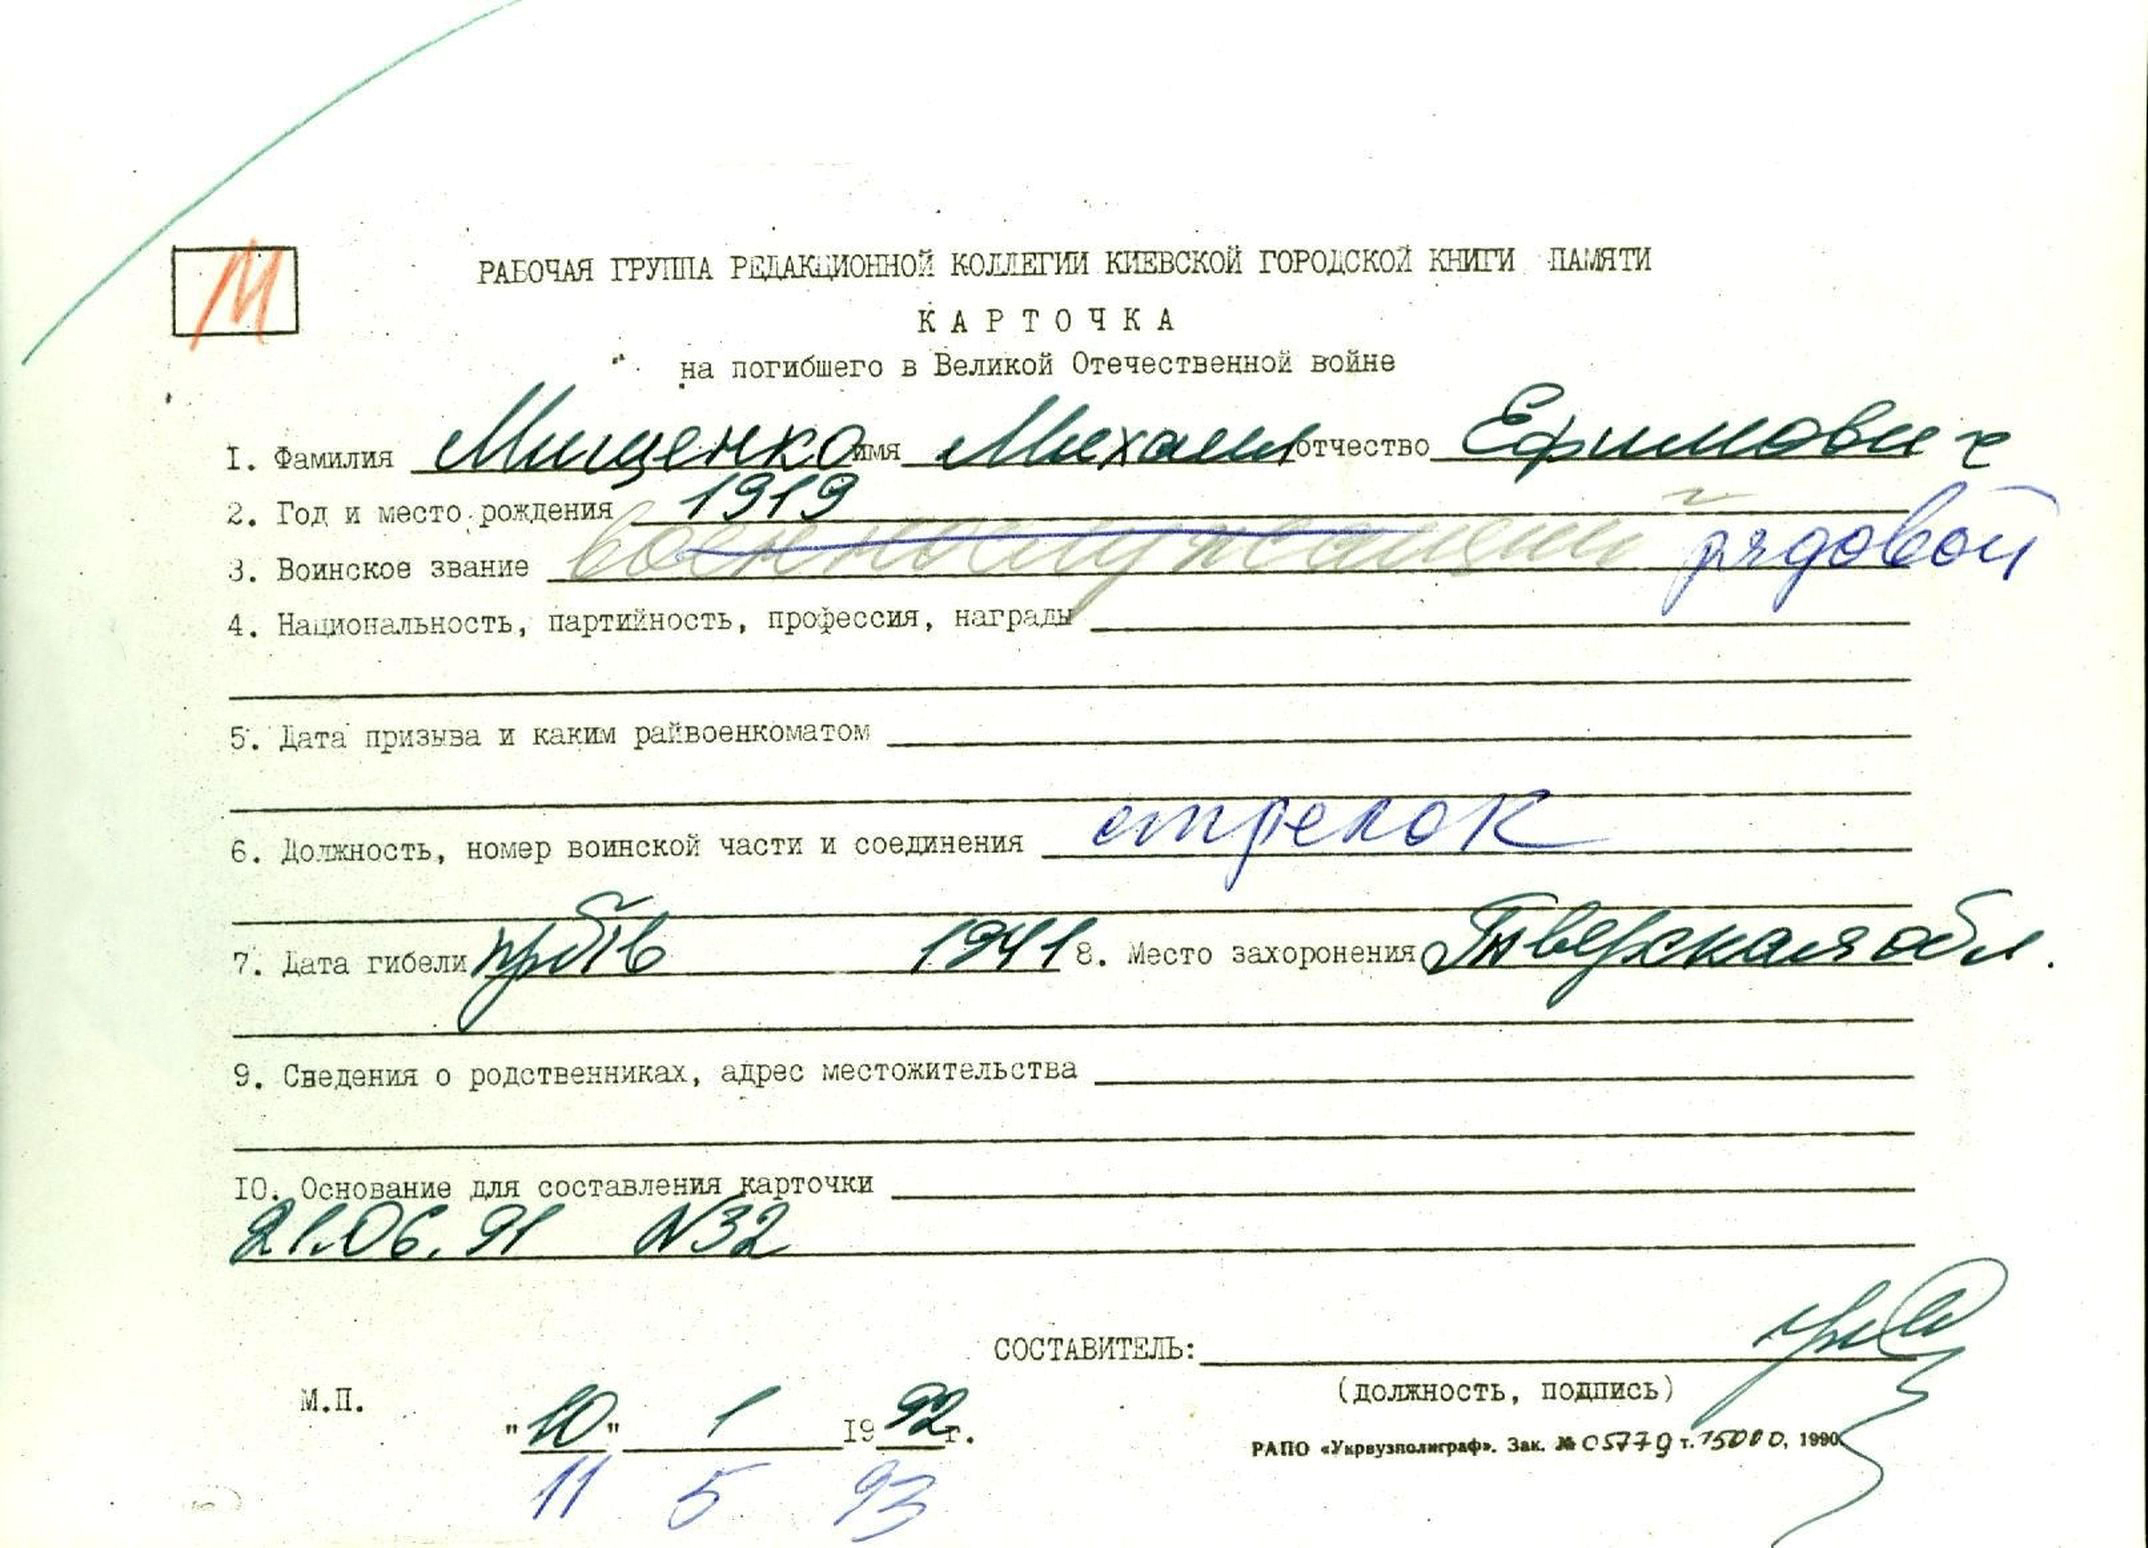 М
РАБОЧАЯ ГРУППА РЕДАКЦИОННОЙ КОЛЛЕГИИ КИЕВСКОЙ ГОРОДСКОЙ КНИГИ ПАМЯТИ
КАРТОЧКА
на погибшего в Великой Отечественной войне
1. Фамилия Мищенко имя Михаил отчество Ефимович
2. Год и место рождения 1919
3. Воинское звание военнослужащий рядовой
4. Национальность, партийность, профессия, награды
5. Дата призыва и каким райвоенкоматом
6. Должность, номер воинской части и соединения стрелок
7. Дата гибели 1941 8. Место захоронения Тверская обл.
9. Сведения о родственниках, адрес местожительства
10. Основание для составления карточки
21.06.91 N32
СОСТАВИТЕЛЬ:
(должность, подпись)
М.П.
"10" 1 1992г.
РАПО «Укрвузполиграф». Зак. № 05779 т. 15000, 1990
11 5 93